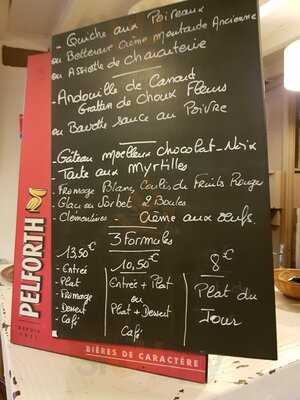 - Quiche aux Poireaux
ou Betterave Crème Moutarde Ancienne
ou Assiette de Charcuterie
- Andouille de Canard
Gratin de Choux Fleurs
ou Bavette sauce au Poivre
- Gâteau moelleux chocolat-Noix
- Tarte aux Myrtilles
- Fromage Blanc, Coulis de Fruits Rouges
- Glace ou Sorbet 2 Boules
- Clémentines - Crème aux œufs.
3 Formules
13,50€
- Entrée
- Plat
- Fromage
- Dessert
- Café
10,50€
Entrée + Plat
ou
Plat + Dessert
Café
8€
Plat du
Jour
PELFORTH
DEPUIS
BIÈRES DE CARACTÈRE